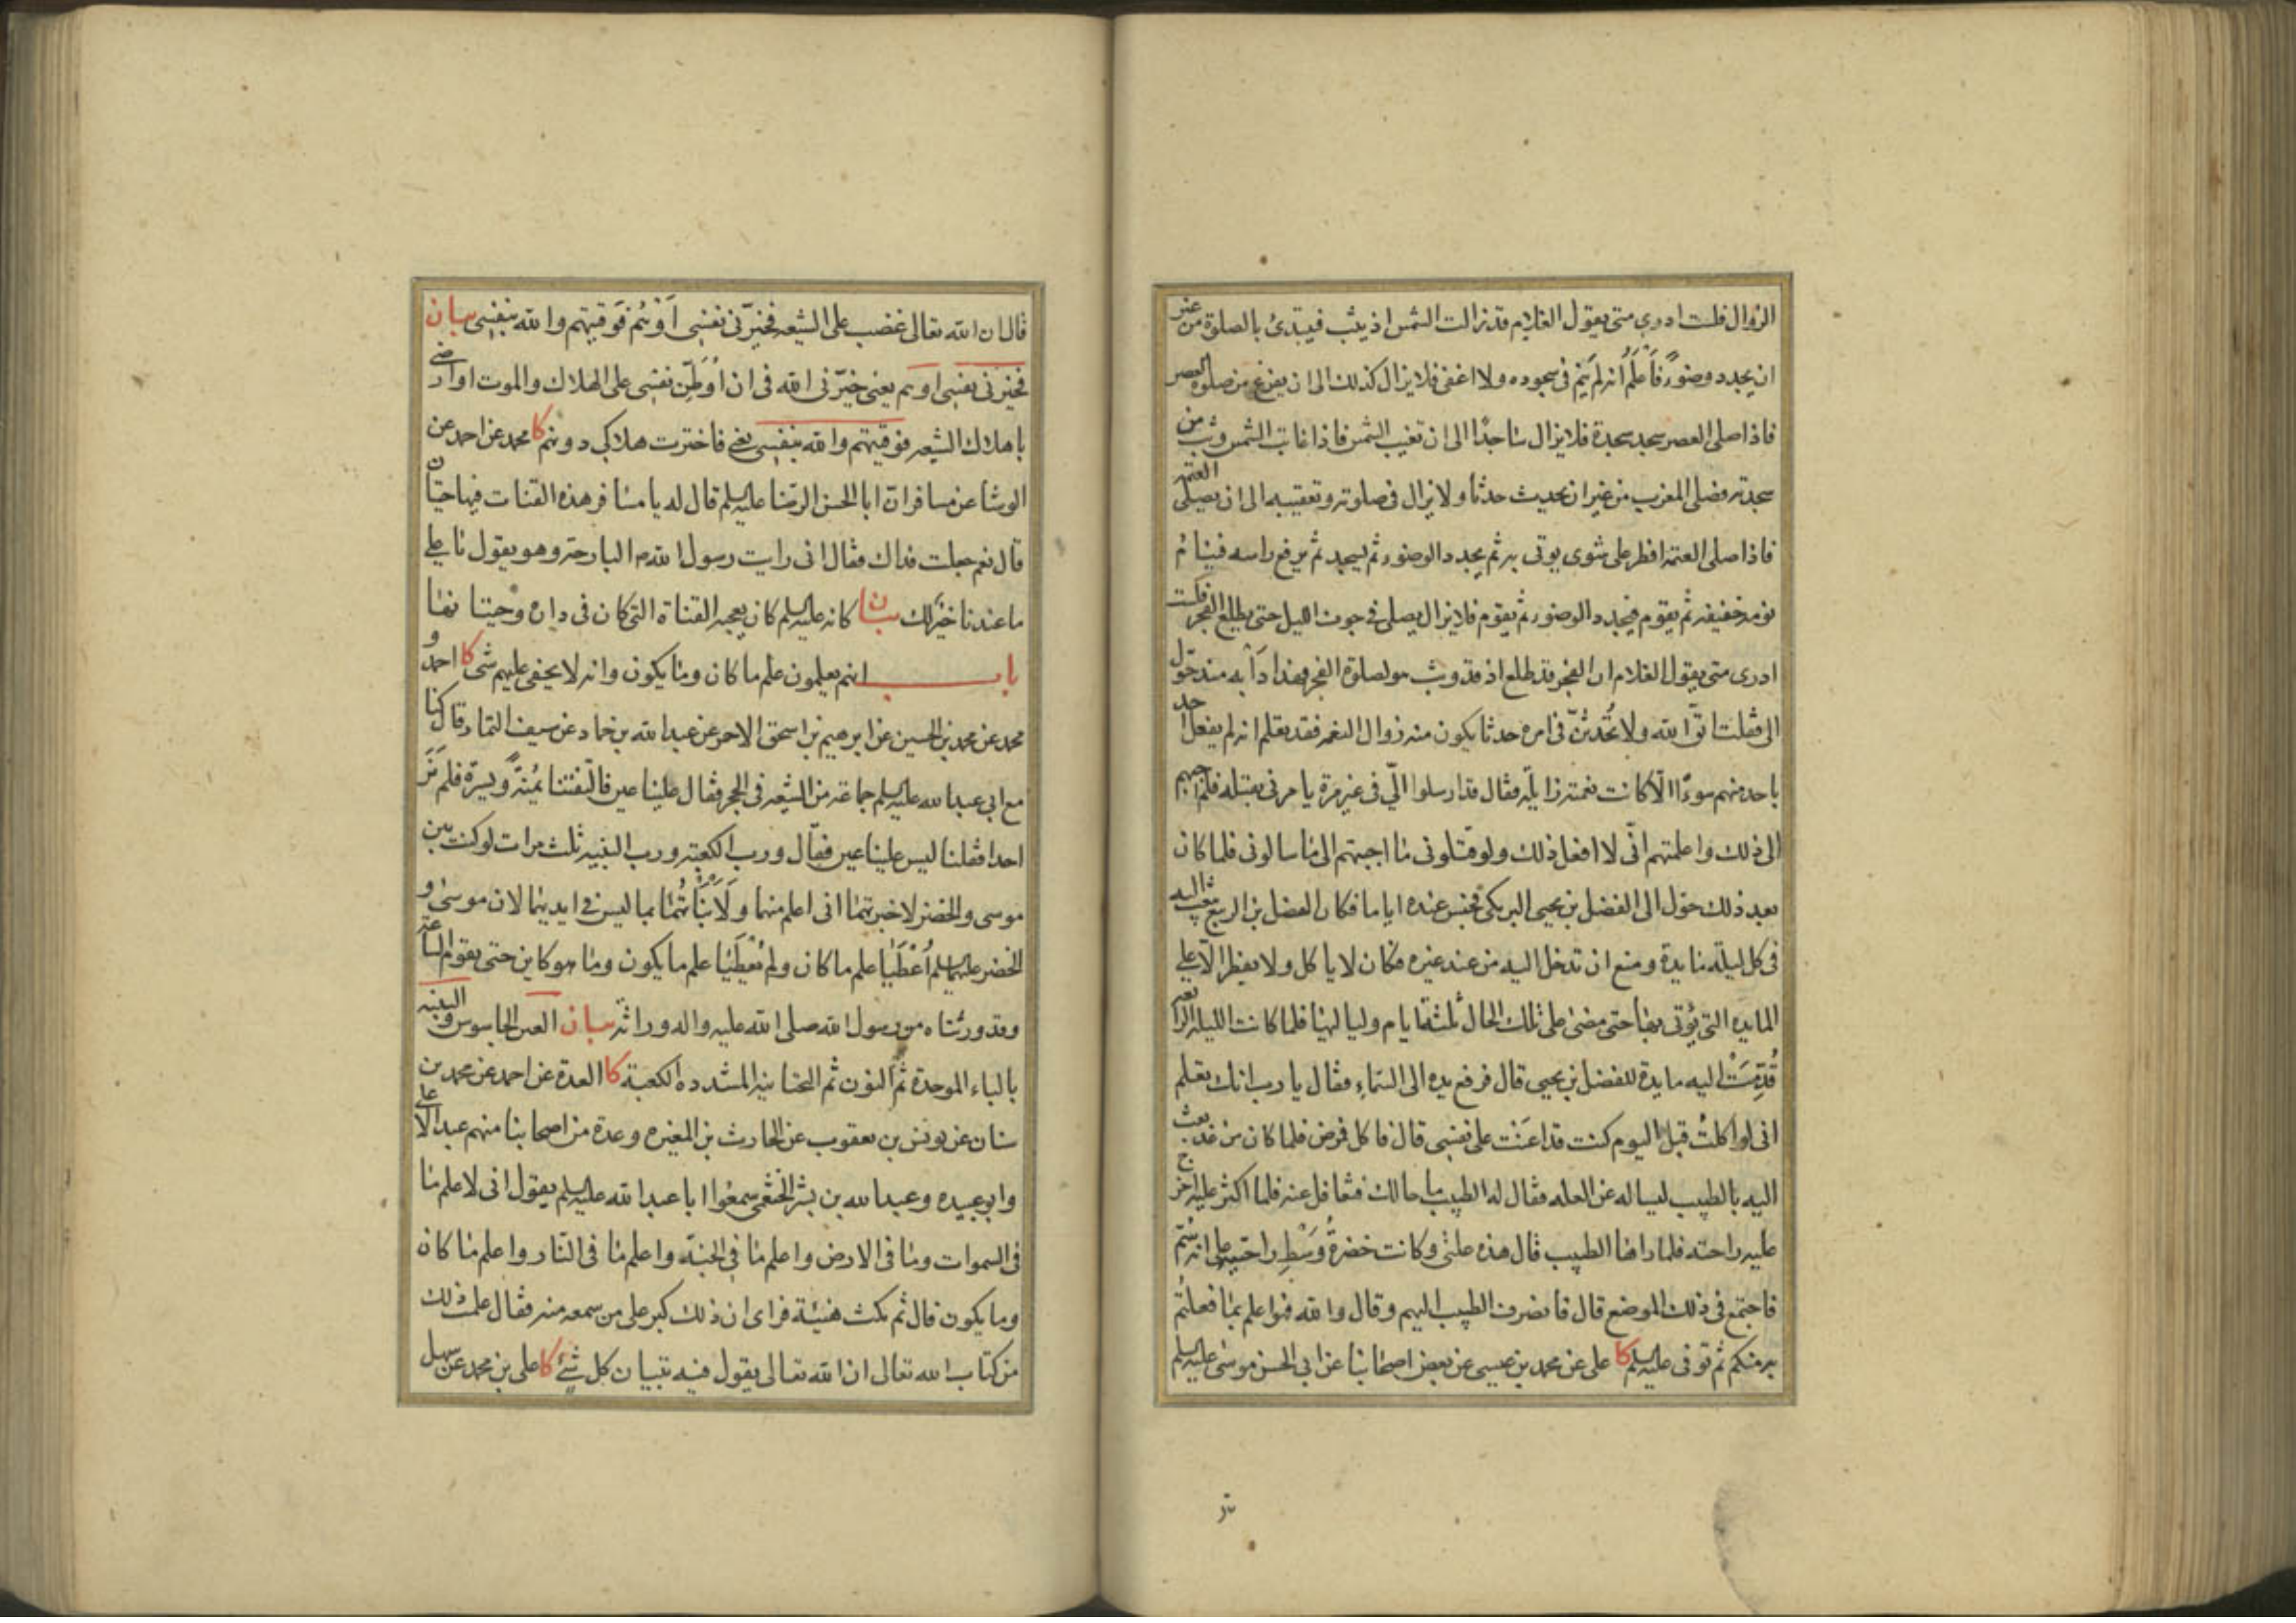 الزوال فلست ادري متى يقول الغلام قد زالت الشمس اذ يثب فيبتدئ بالصلوة من غير
ان يجدد وضوءً فاَعلَمُ انه لم يَنَم في سجوده ولا اغفى فلا يزال كذلك الى ان يفرغ من صلوة العصر
فاذا صلى العصر سجد سجدة فلا يزال ساجدًا الى ان تغيب الشمس فاذا غابت الشمس وثب من
سجدته فصلى المغرب من غير ان يحدث حدثا ولا يزال في صلوته وتعقيبه الى ان يصلى العتمة
فاذا صلى العتمة افطر على شوى يوتى به ثم يجدد الوضوء ثم يسجد ثم يرفع راسه فينام
نومة خفيفة ثم يقوم فيجدد الوضوء ثم يقوم فلا يزال يصلي في جوف الليل حتى يطلع الفجر فلست
ادرى متى يقول الغلام ان الفجر قد طلع اذ قد وثب هو لصلوة الفجر فهذا دَأبه منذ حوّل
الى فقلت اتّق الله ولا تُحدثنّ في امره حدثا يكون منه زوال النعمة فقد تعلم انه لم يفعل احد
باحد منهم سوءًا الّا كانت نعمته زايلة فقال قد ارسلوا اليّ في غير مرة يامرنى بقتله فلم اجبهم
الى ذلك واعلمتهم انّى لا افعل ذلك ولو قتلونى ما اجبتهم الى ما سالونى فلما كان
بعد ذلك حوّل الى الفضل بن يحيى البرمكى فحبس عنده اياما فكان الفضل بن الربيع يبعث اليه
في كل ليلة مايدة ومنع ان تدخل اليه من عند غيره فكان لا ياكل ولا يفطر الّا على
المايده التى يؤتى بها حتى مضى على تلك الحال ثلثة ايام ولياليها فلما كانت الليلة الرابعه
قُدّمَت اليه مايدة للفضل بن يحيى قال فرفع يده الى السماء فقال يا رب انك تعلم
انى لو اكلتُ قبل اليوم كنت قد اعَنت على نفسى قال فاكل فمرض فلما كان من غد بعث
اليه بالطبيب ليساله عن العله فقال له الطبيب ما حالك فتغافل عنه فلما اكثر عليه اخرج
عليه راحته فلما راها الطبيب قال هذه علتى وكانت خضرةُ وَسْطِ راحتيه على انه سُمّ
فاجتمع في ذلك الموضع قال فانصرف الطبيب اليهم وقال والله لهو اعلم بما فعلتم
به منكم ثم توفى عليه السلم كا على عن محمد بن عيسى عن بعض اصحابنا عن ابي الحسن موسى عليه السلم
قال ان الله تعالى غضب على الشيعه فخيرّنى نفسى اَوْ هُم فوَقيتهم والله بنفسى بيان
فخيرنى نفسى او هم يعنى خيّرنى الله في ان اُوَطّن نفسى على الهلاك والموت او ارضى
باهلاك الشيعه فوقيتهم والله بنفسى يعني فاخترت هلاكي دونهم كا محمد عن احمد عن
الوشا عن مسافر ان ابا الحسن الرضا عليه السلم قال له يا مسافر هذه القنات فيها حيتان
قال نعم جعلت فداك فقال انى رايت رسول الله ص البارحة وهو يقول يا على
ما عندنا خير لك بيان كانه عليه السلم كان يعجبه القناة التى كان في داره وحيتانها
باب انهم يعلمون علم ما كان وما يكون وانه لا يخفى عليهم شى كا احمد و
محمد عن محمد بن الحسين عن ابرهيم بن اسحق الاحمر عن عبد الله بن حماد عن سيف التمار قال كنا
مع ابي عبد الله عليه السلم جماعة من الشيعه في الحجر فقال علينا عين فالتفتنا يُمْنةً ويسرة فلم نَرَ
احدا فقلنا ليس علينا عين فقال ورب الكعبة ورب البنية ثلث مرات لو كنت بين
موسى والخضر لاخبرتهما انى اعلم منهما ولَاَنْبَأتُهُمَا بما ليس في ايديهما لان موسى و
الخضر عليهما السلم اُعْطَيَا علم ما كان ولم يُعْطَيَا علم ما يكون وما هو كاين حتى يقوم الساعة
وقد ورثناه من رسول الله صلى الله عليه واله وراثة بيان العين الجاسوس والبنيه
بالباء الموحدة ثم النون ثم التحتانيه المشدده الكعبة كا العدة عن احمد عن محمد بن
سنان عن يونس بن يعقوب عن الحارث بن المغيره وعدة من اصحابنا منهم عبد الاعلى
وابو عبيده وعبد الله بن بشر الخثعمى سمعوا ابا عبد الله عليه السلم يقول انى لاعلم ما
في السموات وما في الارض واعلم ما في الجنة واعلم ما في النار واعلم ما كان
وما يكون قال ثم مكث هنيئة فراى ان ذلك كبر على من سمعه منه فقال علمت ذلك
من كتاب الله تعالى ان الله تعالى يقول فيه تبيان كل شئ كا على بن محمد عن سهل